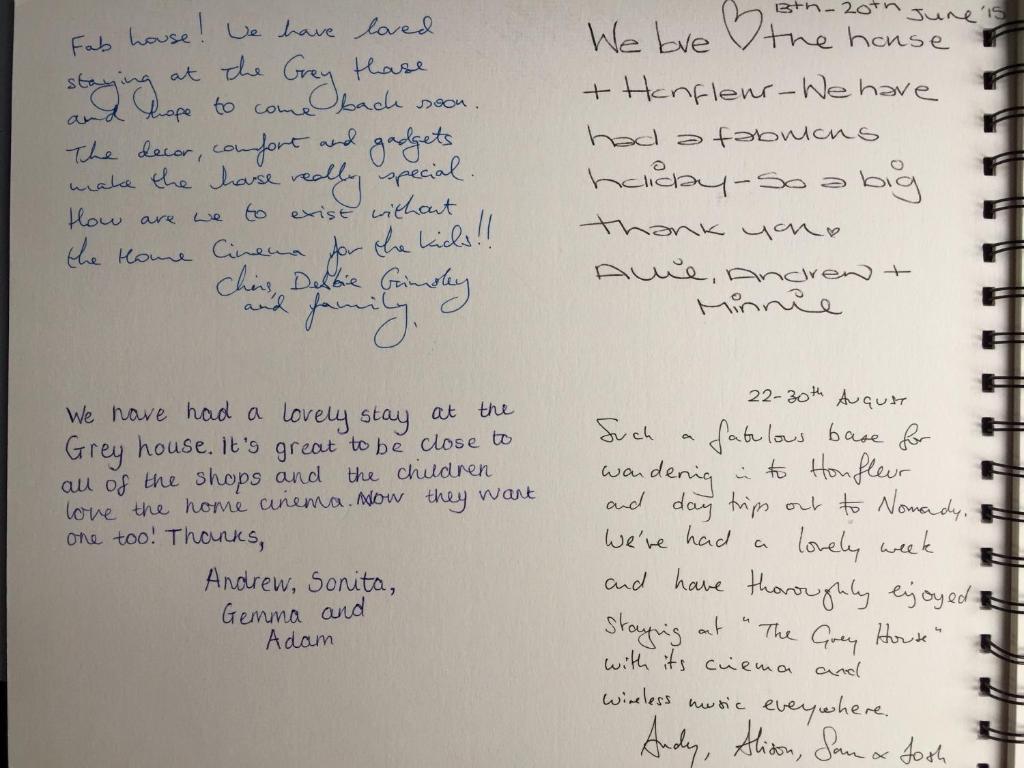 Fab house! We have loved
staying at the Grey House
and hope to come back soon.
The decor, comfort and gadgets
make the house really special.
How are we to exist without
the Home Cinema for the kids!!
Chris, Debbie Grimsley
and family.
We have had a lovely stay at the
Grey house. It's great to be close to
all of the shops and the children
love the home cinema. Now they want
one too! Thanks,
Andrew, Sonita,
Gemma and
Adam
13th-20th June '15
We love the house
+ Honfleur-We have
had a fabulous
holiday-so a big
thank you
Allie, Andrew +
Minnie
22-30th August
Such a fabulous base for
wandering in to Honfleur
and day trips out to Nomady.
We've had a lovely week
and have thoroughly enjoyed
staying at "The Grey House"
with its cinema and
wireless music everywhere.
Andy, Alison, Sam & Josh